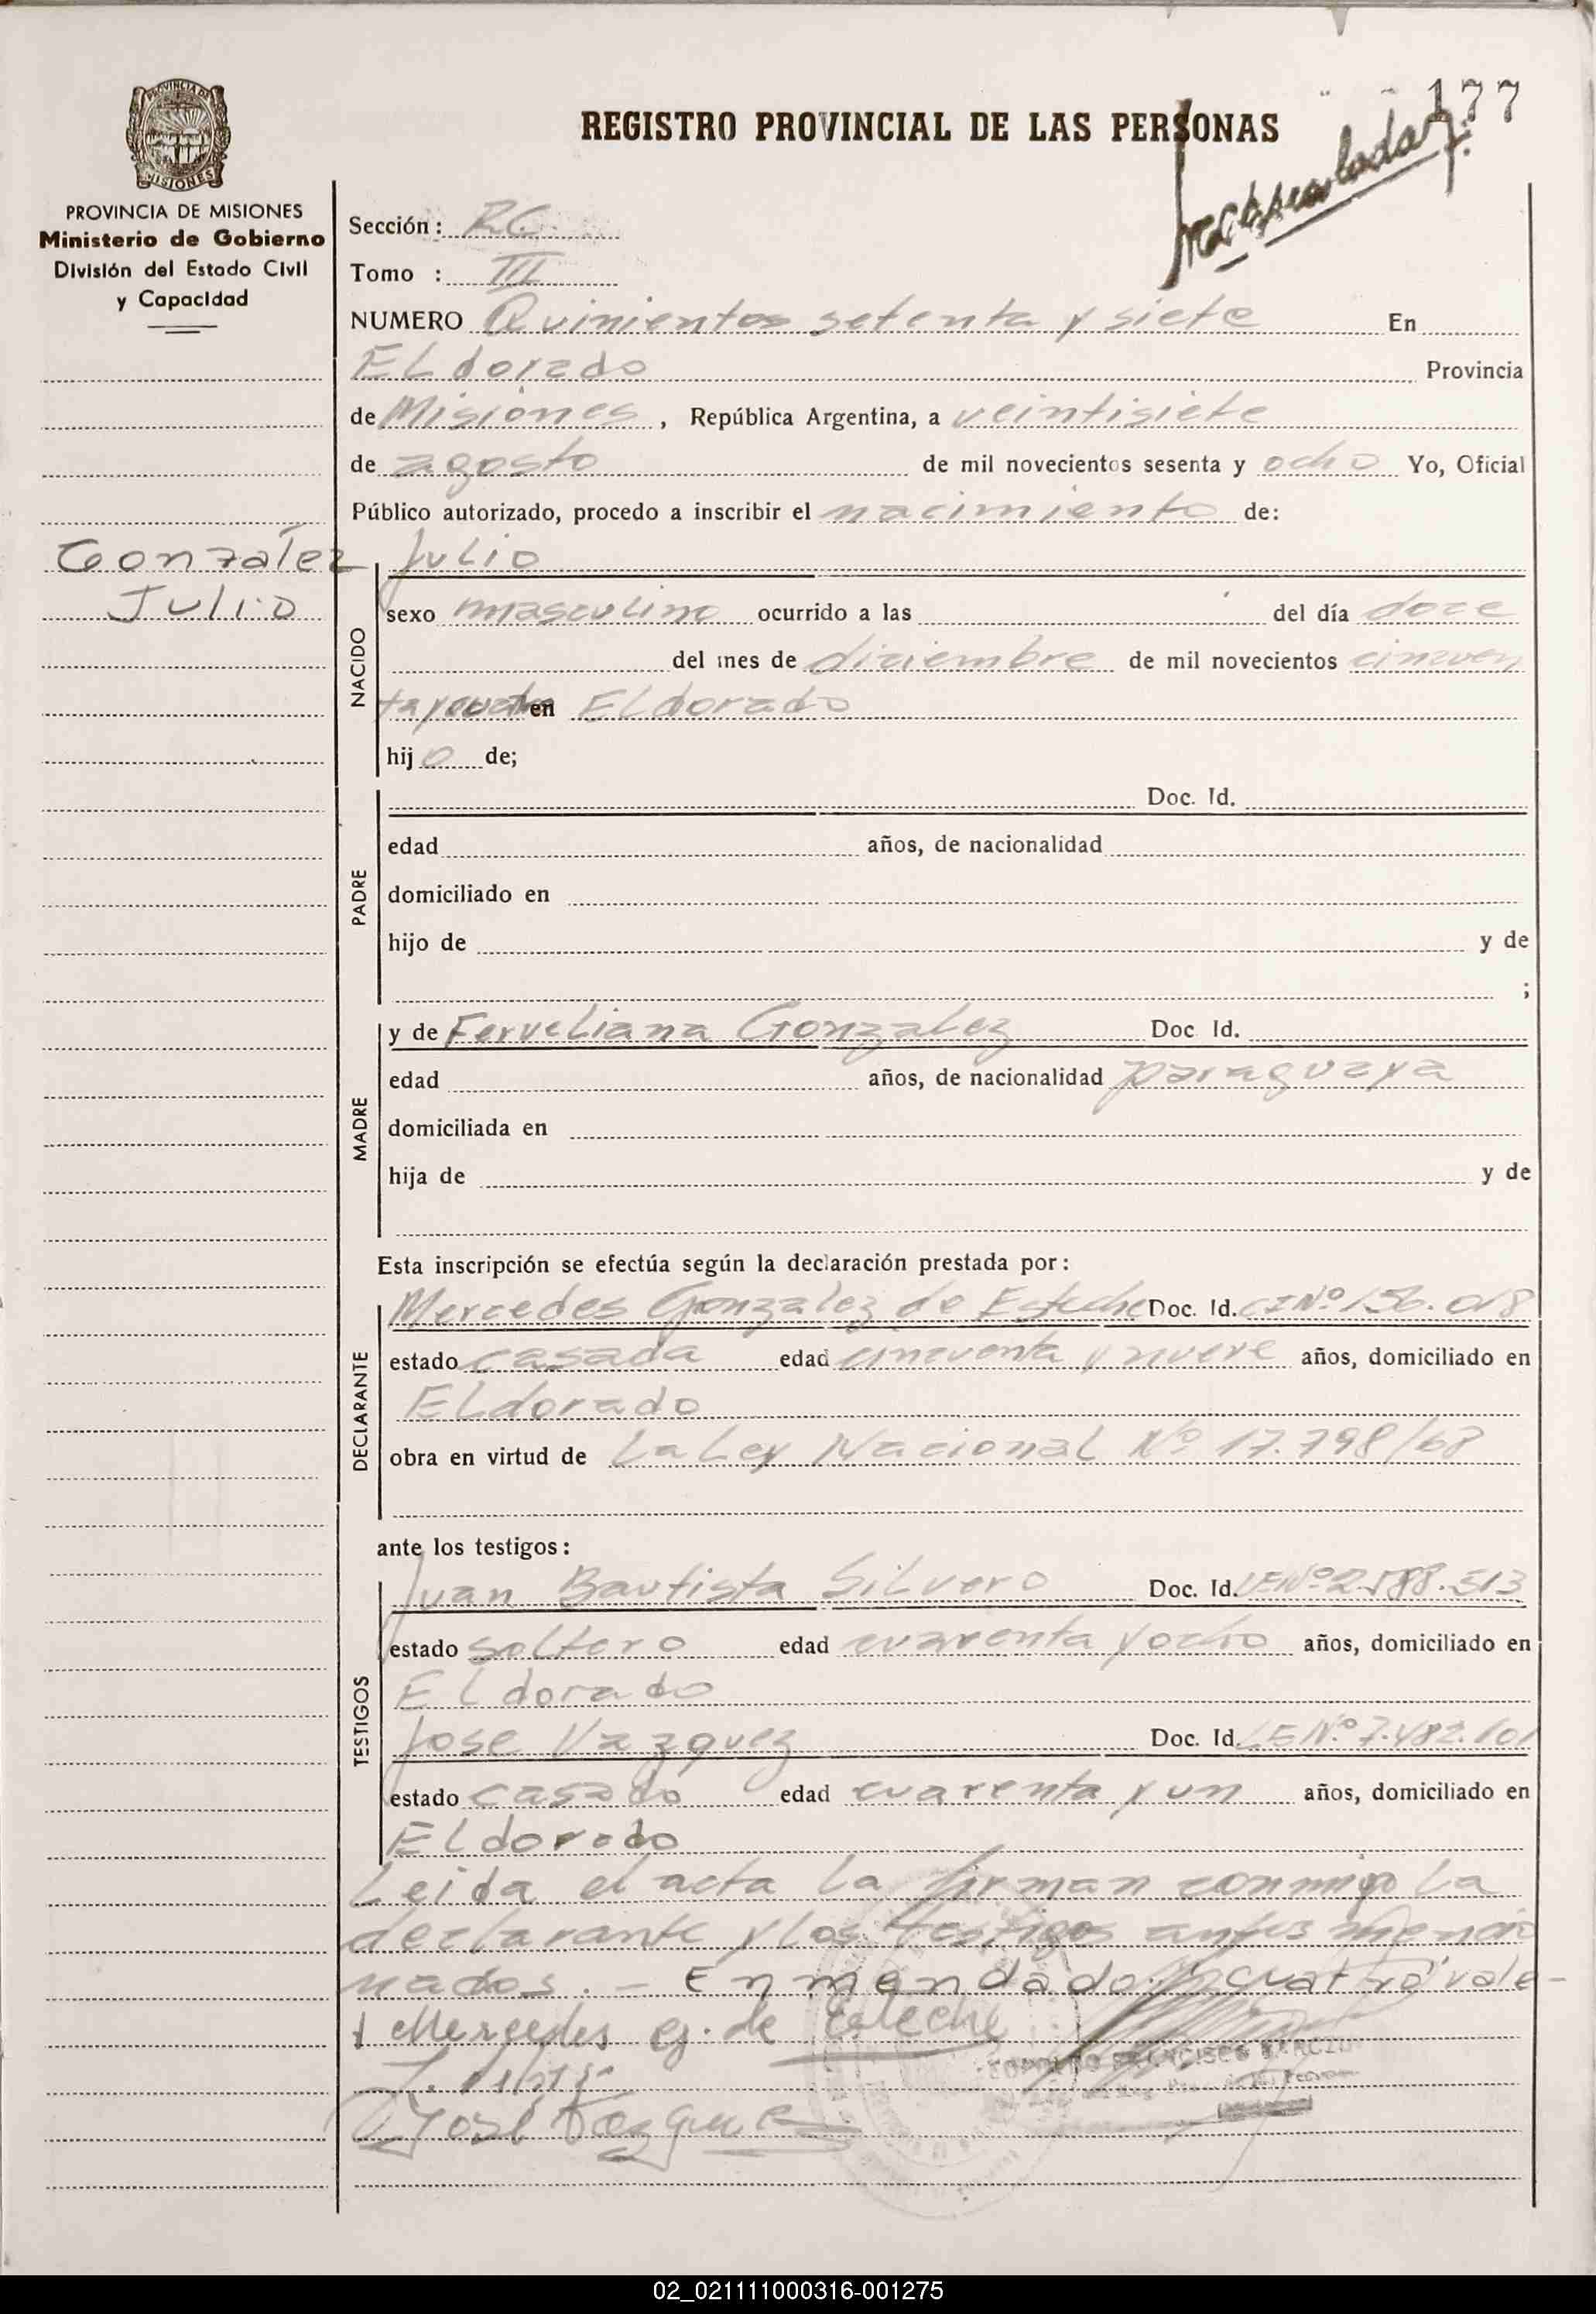 177
REGISTRO PROVINCIAL DE LAS PERSONAS
PROVINCIA DE MISIONES
MISIONES
PROVINCIA DE MISIONES
Ministerio de Gobierno
División del Estado Civil
y Capacidad
Sección: R.C.
Tomo : III
NUMERO Quinientos setenta y siete En
Eldorado Provincia
de Misiones, República Argentina, a veintisiete
de agosto de mil novecientos sesenta y ocho Yo, Oficial
Público autorizado, procedo a inscribir el nacimiento de:
Gonzalez
Julio
NACIDO
Julio
sexo masculino ocurrido a las del día doce
del mes de diciembre de mil novecientos cincuen
ta y cuatro en Eldorado
hijo de;
PADRE
Doc. Id.
edad años, de nacionalidad
domiciliado en
hijo de y de
;
MADRE
y de Ferveliana Gonzalez Doc Id.
edad años, de nacionalidad paraguaya
domiciliada en
hija de y de
Esta inscripción se efectúa según la declaración prestada por:
DECLARANTE
Mercedes Gonzalez de Esteche Doc. Id. CI Nº 156.018
estado casada edad cincuenta y nueve años, domiciliado en
Eldorado
obra en virtud de La Ley Nacional Nº 17.798/68
ante los testigos:
TESTIGOS
Juan Bautista Silvero Doc. Id. LE Nº 2.588.513
estado soltero edad cuarenta y ocho años, domiciliado en
Eldorado
Jose Vazquez Doc. Id. LE Nº 7.482.101
estado casado edad cuarenta y un años, domiciliado en
Eldorado
Leida el acta la firman conmigo la
declarante y los testigos antes mencio
nados. - Enmendado: "cuatro" vale-
Mercedes G. de Esteche
José Vazquez
02_021111000316-001275